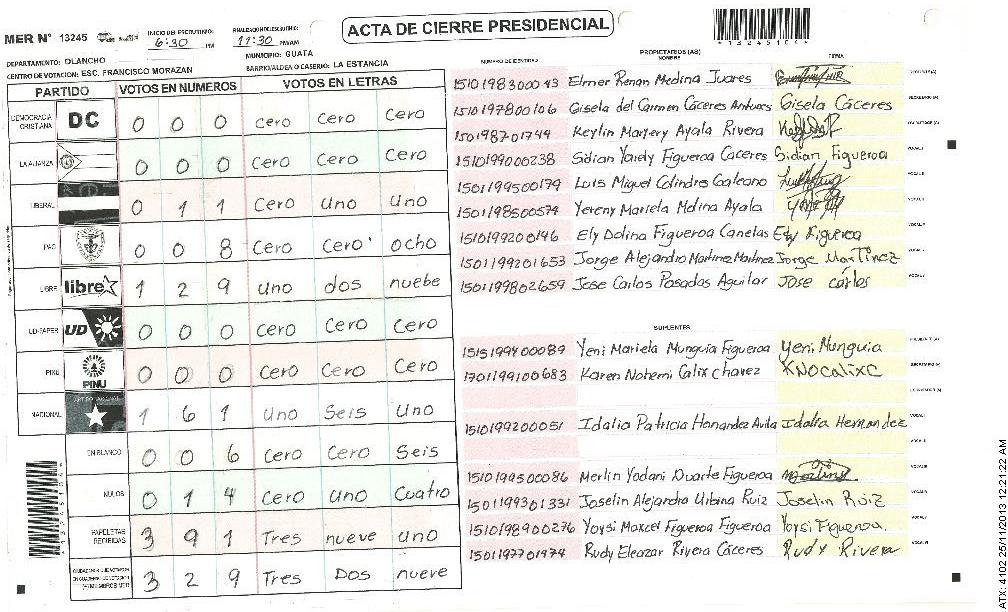 ACTA DE CIERRE PRESIDENCIAL
MER N° 13245
INICIO DEL ESCRUTINIO: 6:30 PM
FINALIZACION DE ESCRUTINIO: 11:30 PM/AM
*13245104*
DEPARTAMENTO: OLANCHO
MUNICIPIO: GUATA
CENTRO DE VOTACION: ESC. FRANCISCO MORAZAN
BARRIO/ALDEA O CASERIO: LA ESTANCIA
PARTIDO VOTOS EN NUMEROS VOTOS EN LETRAS
DEMOCRACIA CRISTIANA DC 0 0 0 Cero Cero Cero
LA ALIANZA 0 0 0 Cero Cero Cero
LIBERAL 0 1 1 Cero Uno Uno
PAC 0 0 8 Cero Cero ocho
LIBRE libre 1 2 9 Uno dos nuebe
UD-FAPER UD 0 0 0 Cero Cero Cero
PINU PINU 0 0 0 Cero Cero Cero
NACIONAL 1 6 1 Uno Seis Uno
EN BLANCO 0 0 6 Cero Cero Seis
NULOS 0 1 4 Cero uno Cuatro
PAPELETAS RECIBIDAS 3 9 1 Tres nueve uno
3 2 9 Tres Dos nueve
NUMERO DE IDENTIDAD PROPIETARIOS (AS) NOMBRE FIRMA
1510198300043 Elmer Renan Medina Juares
1510197800106 Gisela del Carmen Cáceres Antunes Gisela Cáceres
150198701744 Keylin Marjery Ayala Rivera
1510199000238 Sidian Yardy Figueroa Caceres Sidian Figueroa
1501199500179 Luis Miguel Colindres Galeano
1501198500574 Yereny Mariela Medina Ayala
1510199200146 Ely Dolina Figueroa Canelas Ely Figueroa
1501199201653 Jorge Alejandro Martinez Martinez Jorge Martinez
1501199802659 Jose Carlos Posadas Aguilar Jose cárlos
SUPLENTES
1515199400089 Yeni Mariela Munguia Figueroa Yeni Munguia
1701199100683 Karen Nohemi Calix chavez KNOcalixc
1510199200051 Idalia Patricia Hernandez Avila Idalia Hernandez
1510199500086 Merlin Yodani Duarte Figueroa
1501199301331 Joselin Alejandra Urbina Ruiz Joselin Ruiz
1510198900276 Yoysi Maxcel Figueroa Figueroa Yoysi Figueroa.
1501197701974 Rudy Eleazar Rivera Cáceres Rudy Rivera
ATX: 4102 25/11/2013 12:21:22 AM